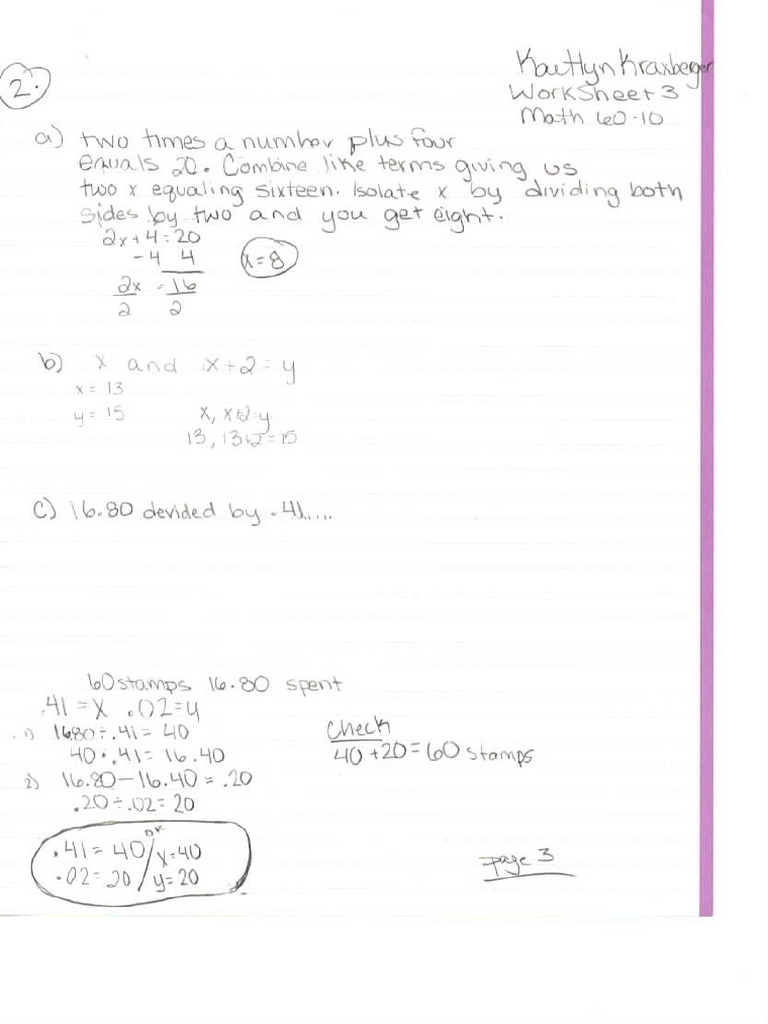 Kaitlyn Kraxberger
Worksheet 3
Math 60-10
2.
a) two times a number plus four
equals 20. Combine like terms giving us
two x equaling sixteen. Isolate x by dividing both
sides by two and you get eight.
2x+4=20
-4 4
x=8
2x = 16
2 2
b) x and x+2=y
x=13
y=15 x, x+2=y
13, 13+2=15
c) 16.80 devided by .41.....
60 stamps 16.80 spent
.41=x .02=y
1) 16.80÷.41=40
40·.41=16.40
2) 16.80-16.40=.20
.20÷.02=20
Check
40+20=60 stamps
or
.41=40/x=40
.02=20/y=20
page 3